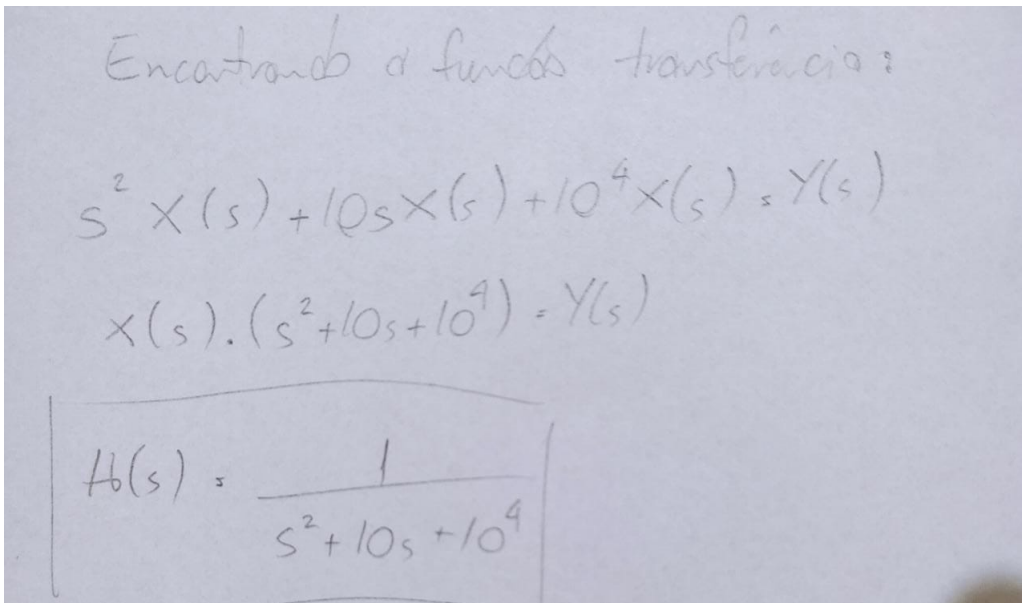 Encontrando a função transferência:
s² X(s) + 10s X(s) + 10⁴ X(s) = Y(s)
X(s) . (s² + 10s + 10⁴) = Y(s)
H(s) = 1 / (s² + 10s + 10⁴)